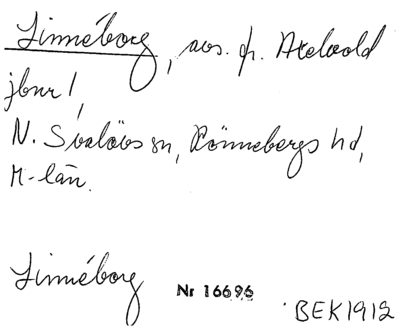 Linnéborg, avs. fr. Axelvold
jbnr 1,
N. Svalövs sn, Rönnebergs hd,
M-län.
Linnéborg Nr 16696 BEK1912